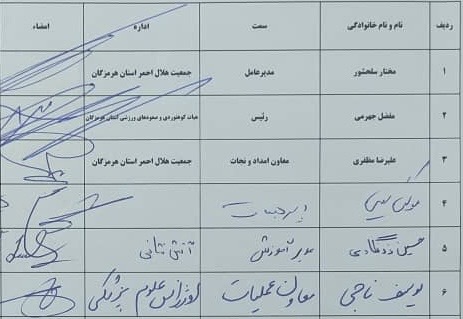 ردیف نام و نام خانوادگی سمت اداره امضاء
۱ مختار سلحشور مدیرعامل جمعیت هلال احمر استان هرمزگان
۲ مفضل جهرمی رئیس هیات کوهنوردی و صعودهای ورزشی استان هرمزگان
۳ علیرضا مظفری معاون امداد و نجات جمعیت هلال احمر استان هرمزگان
۴
۵ حسین مدیر آموزش آتش نشانی
۶ یوسف ناجی معاون عملیات اورژانس علوم پزشکی